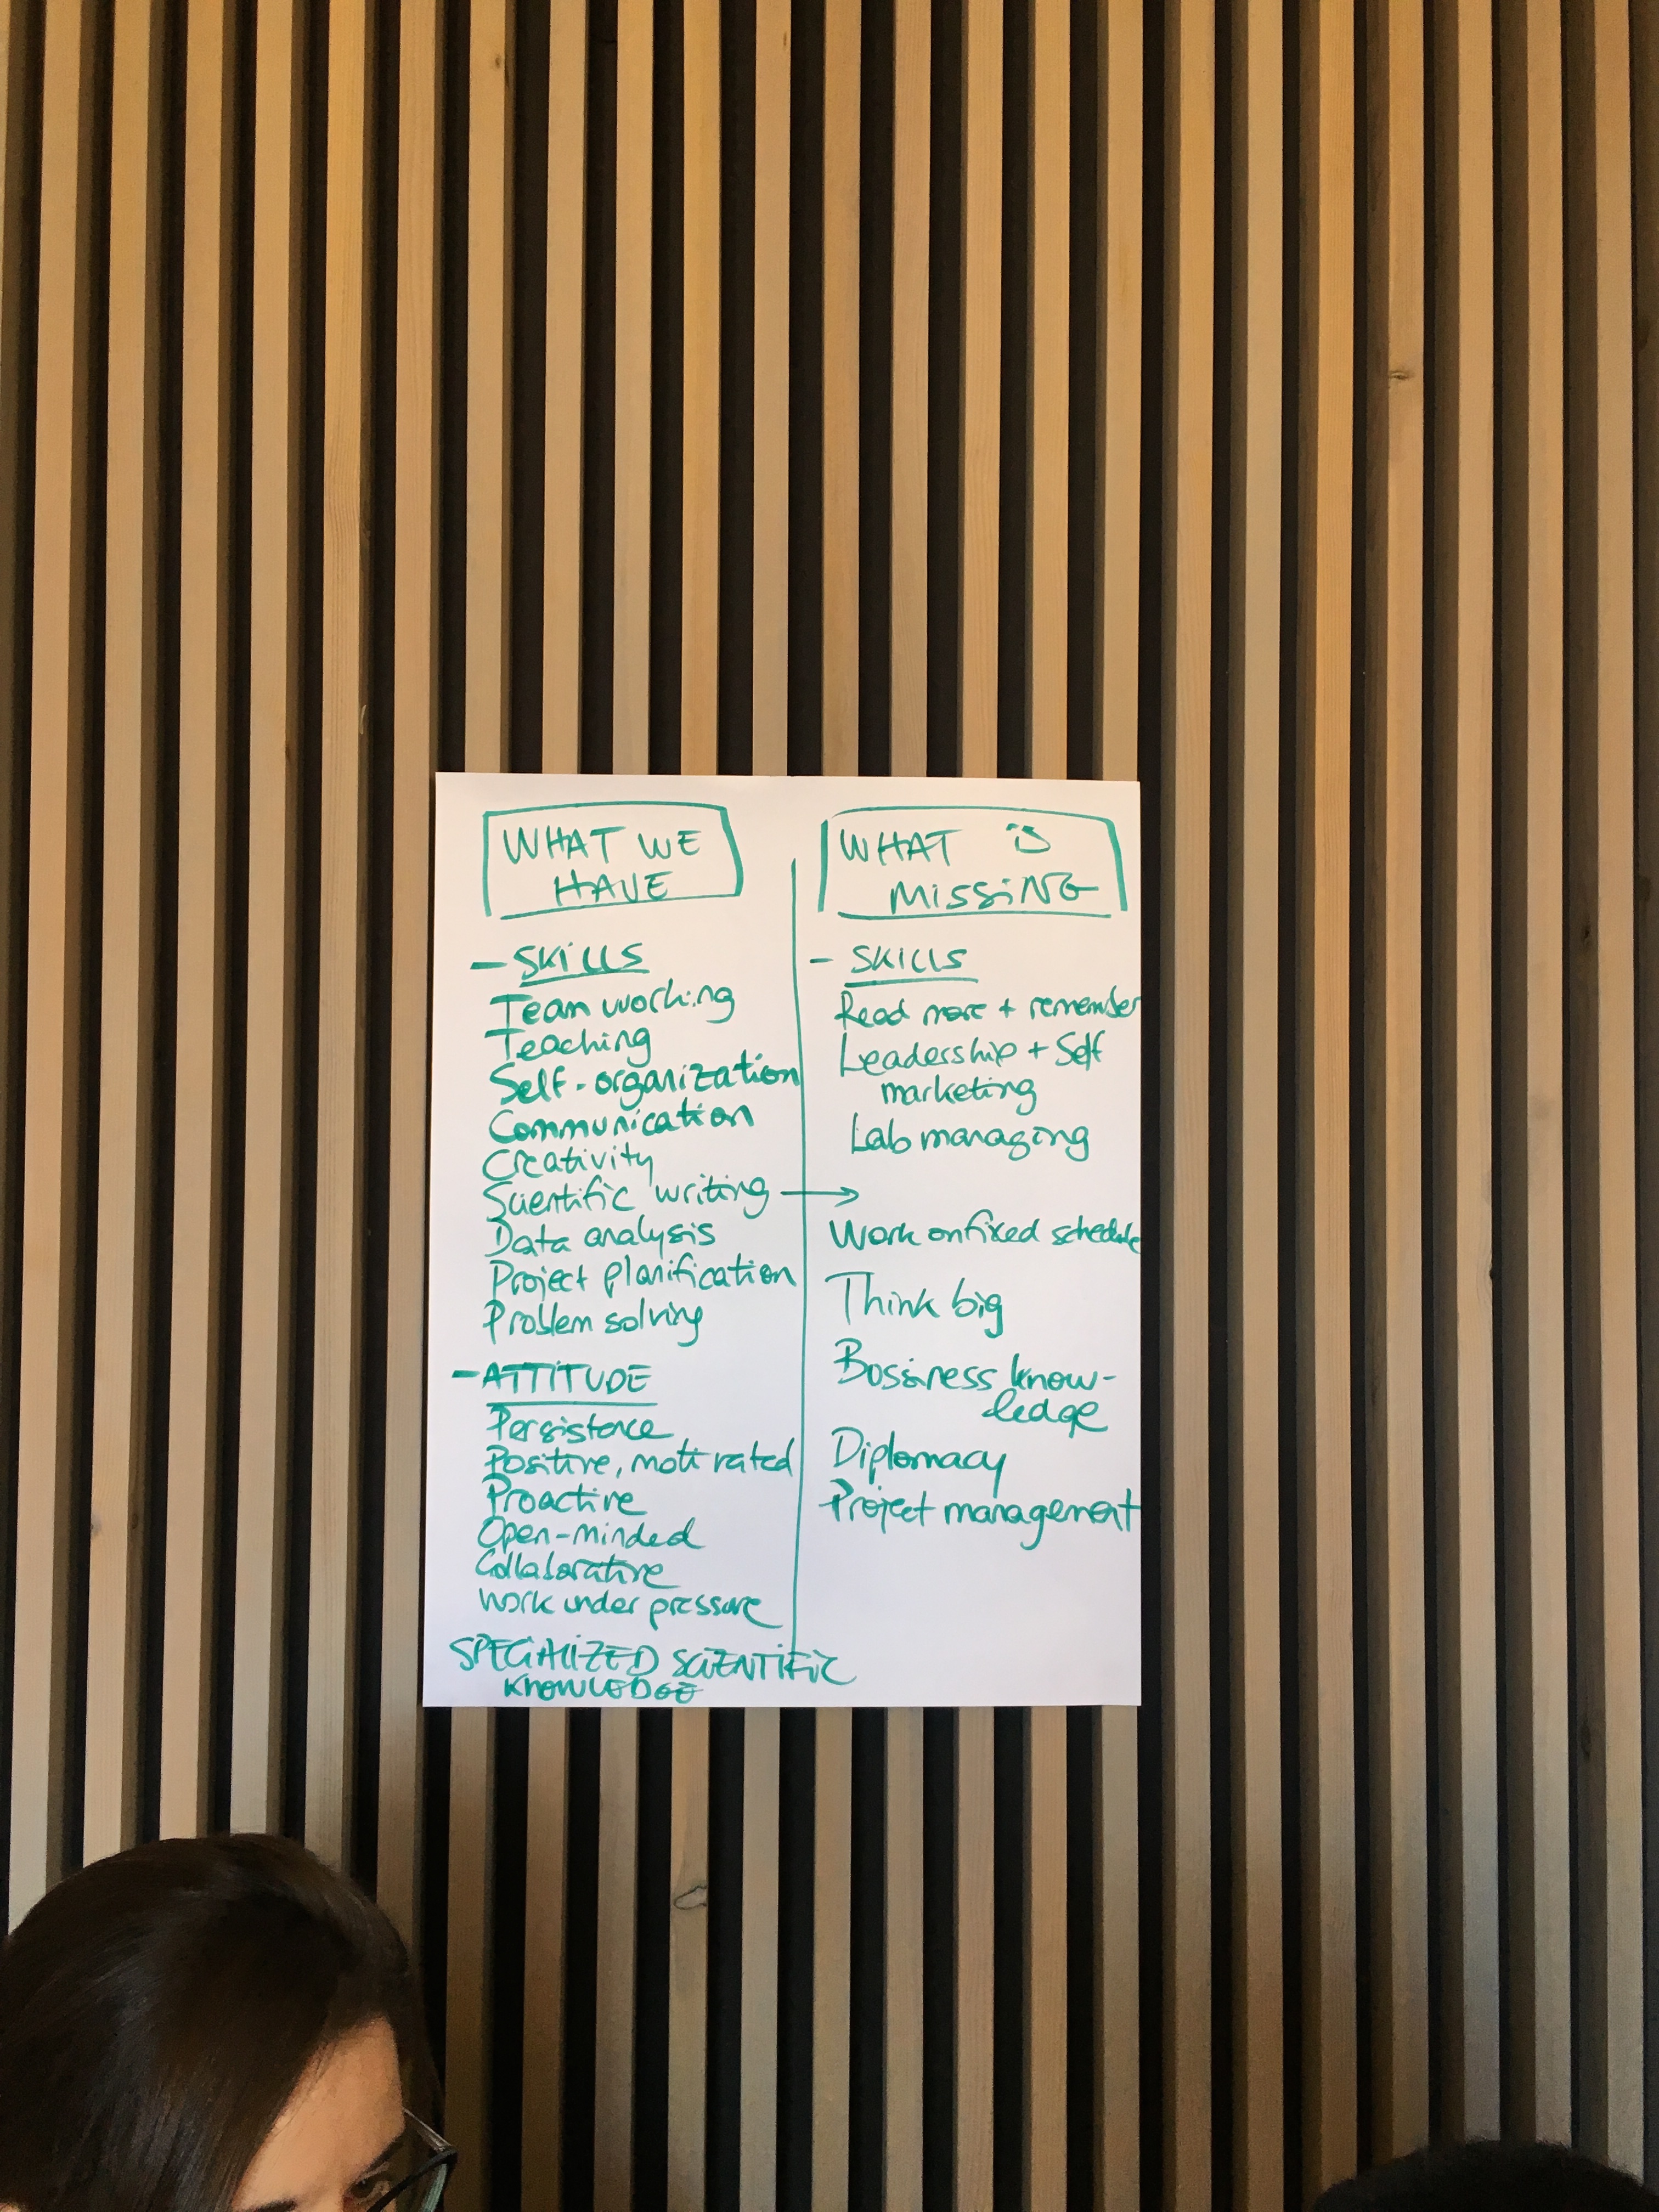 WHAT WE
HAVE
- SKILLS
Team working
Teaching
Self-organization
Communication
Creativity
Scientific writing →
Data analysis
Project planification
Problem solving
- ATTITUDE
Persistence
Positive, motivated
Proactive
Open-minded
Collaborative
Work under pressure
SPECIALIZED SCIENTIFIC
KNOWLEDGE
WHAT IS
MISSING
- SKILLS
Read more + remember
Leadership + Self
marketing
Lab managing
Work on fixed schedule
Think big
Bossiness know-
ledge
Diplomacy
Project management